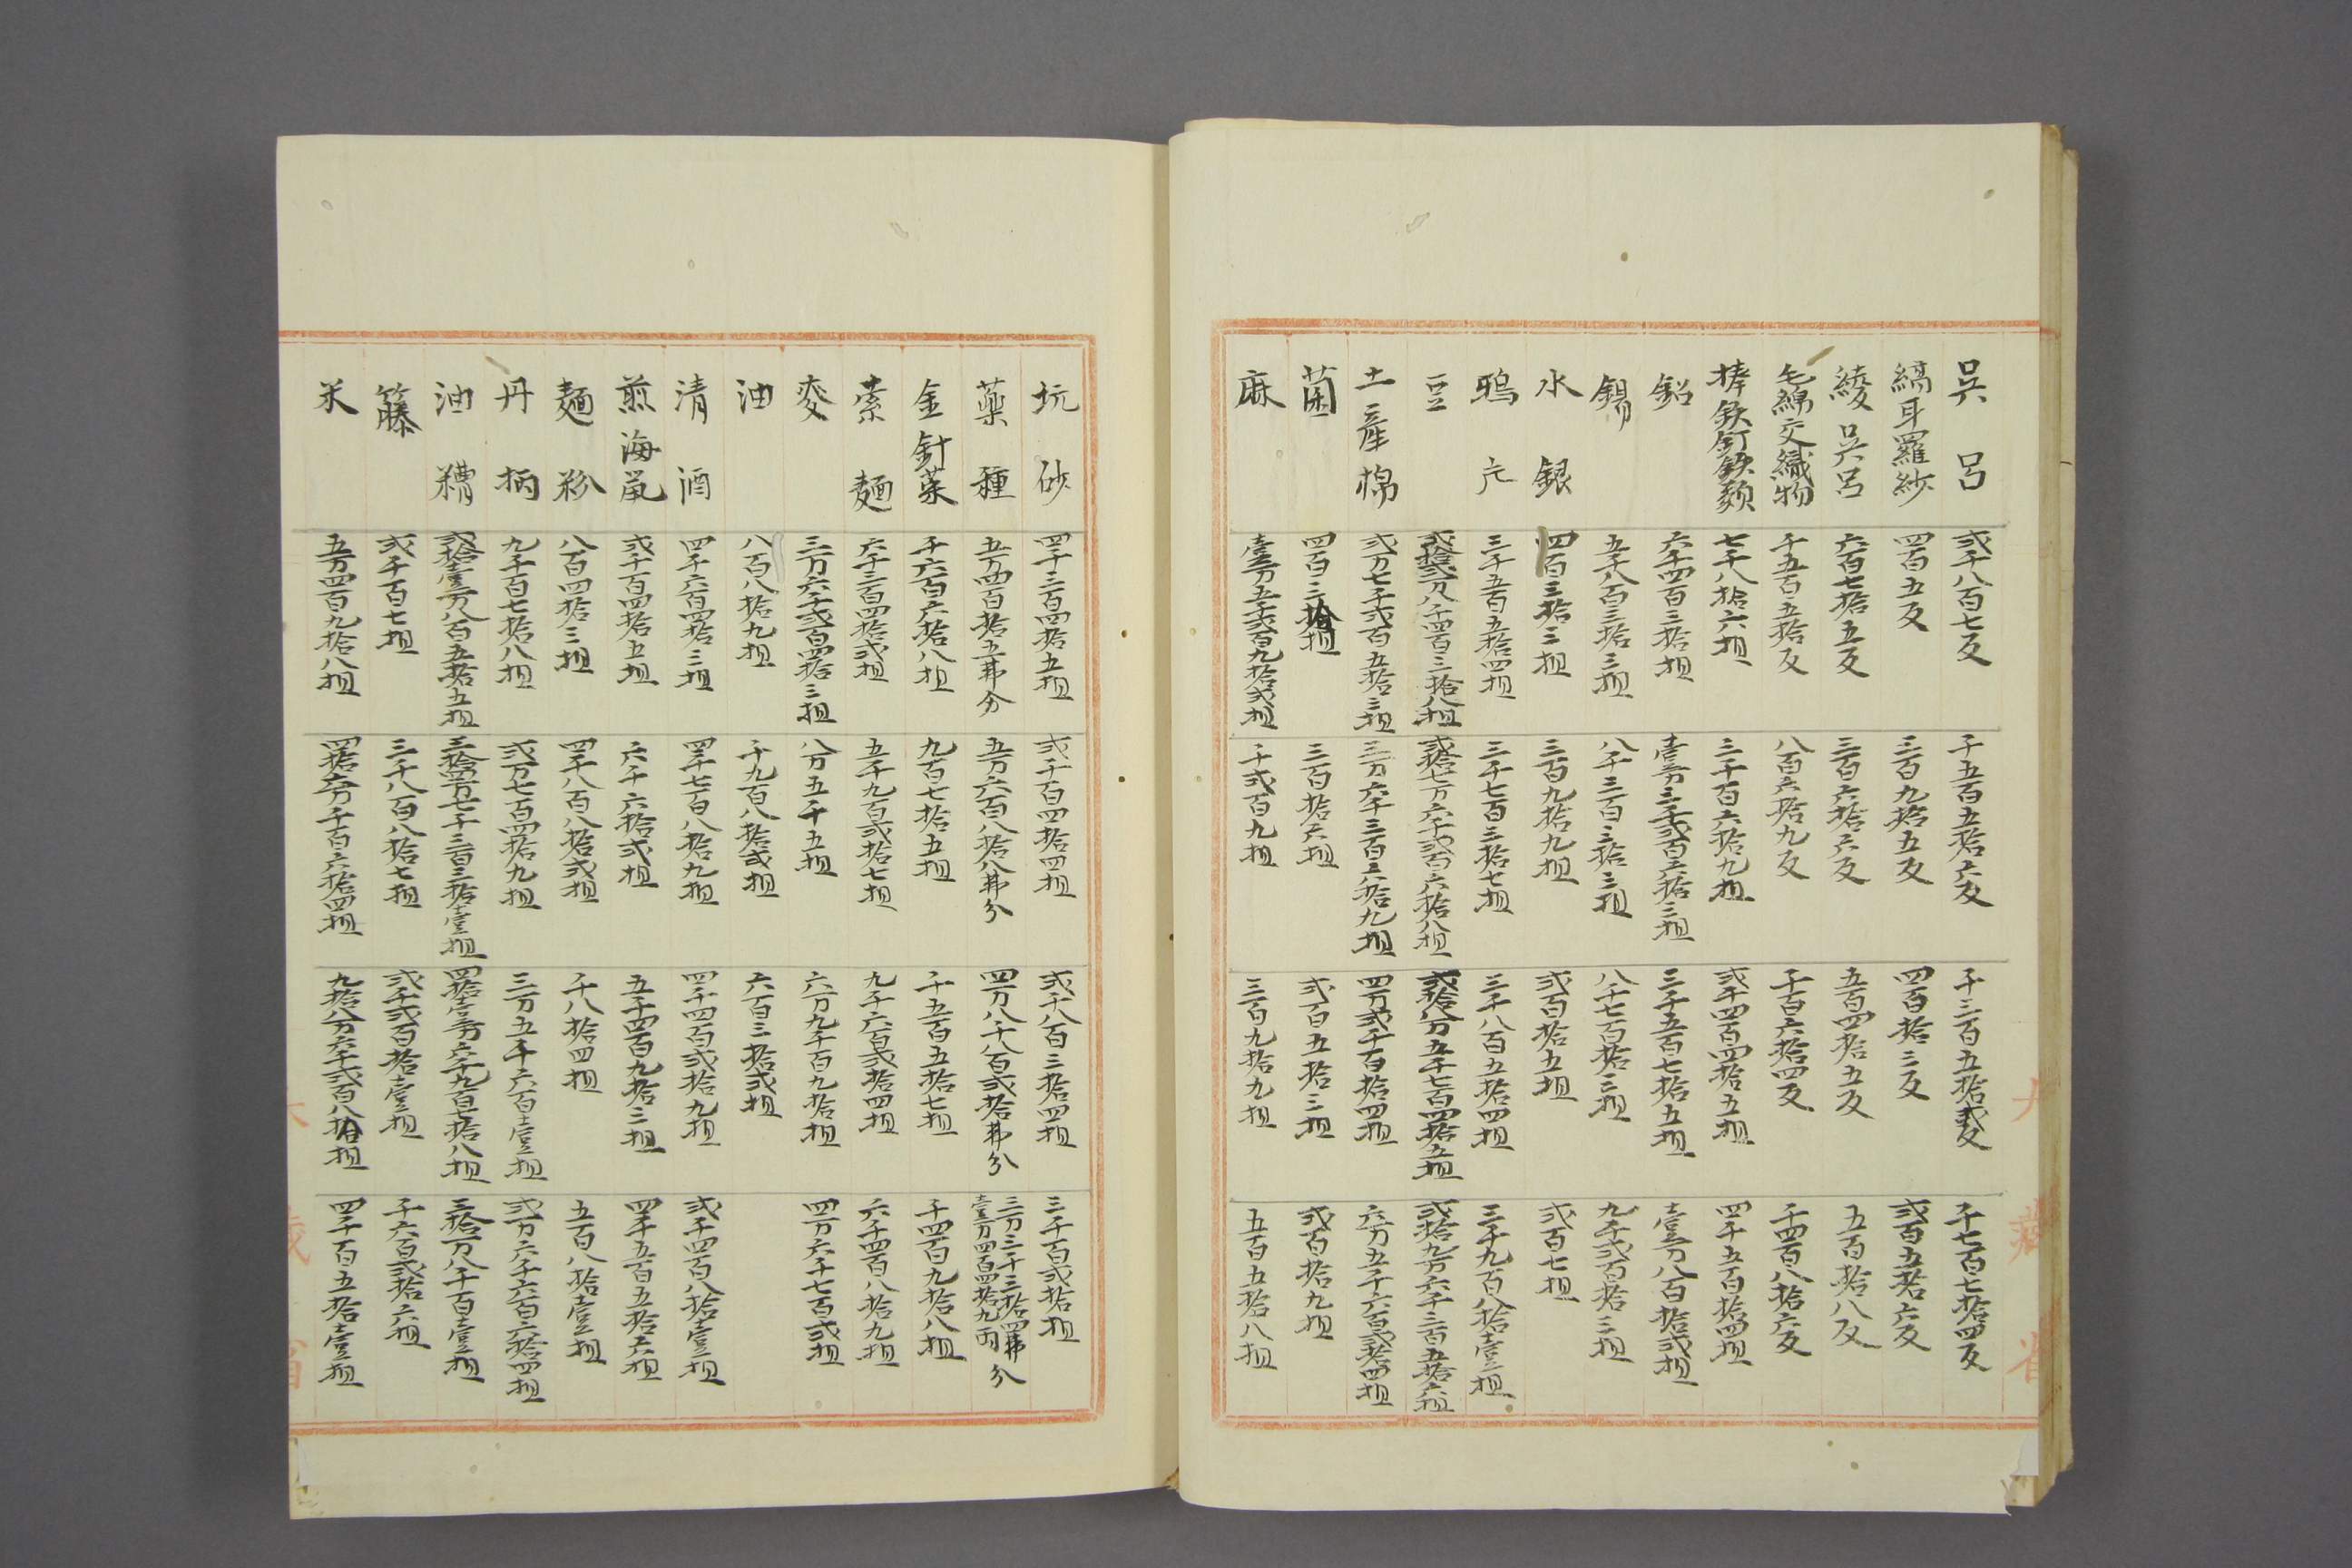 呉呂 弐千八百七反 千五百五拾六反 千三百五拾弐反 千七百七拾四反
縞耳羅紗 四百五反 三百九拾五反 四百拾三反 弐百五拾六反
綾呉呂 六百七拾五反 三百六拾六反 五百四拾五反 五百拾八反
毛綿交織物 千五百五拾反 八百六拾九反 千百六拾四反 千四百八拾六反
棒鉄釘鉄類 七千八拾六担 三千百六拾九担 弐千四百四拾五担 四千五百拾四担
鉛 六千四百三拾担 壹万三千弐百六拾三担 三千五百七拾五担 壹万八百拾弐担
錫 五千八百三拾三担 八千三百三拾三担 八千七百拾三担 九千弐百拾三担
水銀 四百三拾三担 三百九拾九担 弐百拾五担 弐百七担
鴉片 三千五百五拾四担 三千七百三拾七担 三千八百五拾四担 三千九百八拾壹担
豆 弐拾弐万八千四百三拾八担 弐拾七万六千弐百六拾八担 弐拾八万五千七百四拾五担 弐拾九万六千三百五拾六担
土産棉 弐万七千弐百五拾三担 三万六千三百六拾九担 四万弐千百拾四担 六万五千六百弐拾四担
菌 四百三拾担 三百拾六担 弐百五拾三担 弐百拾九担
麻 壹万五千弐百九拾弐担 千弐百九担 三百九拾九担 五百五拾八担
坑砂 四千三百四拾五担 弐千百四拾四担 弐千八百三拾四担 三千百弐拾担
薬種 五万四百拾五弗分 五万六百八拾八弗分 四万八千八百弐拾弗分 三万三千三拾四弗 壹万四百四拾九両 分
金針菜 千六百六拾八担 九百七拾五担 千五百五拾七担 千四百九拾八担
索麺 六千三百四拾弐担 五千九百弐拾七担 九千六百弐拾四担 六千四百八拾九担
麥 三万六千弐百四拾三担 八万五千五担 六万九千百九拾担 四万六千七百弐担
油 八百八拾九担 千九百八拾弐担 六百三拾弐担
清酒 四千六百四拾三担 四千七百八拾九担 四千四百弐拾九担 弐千四百八拾壹担
煎海鼠 弐千百四拾五担 六千六拾弐担 五千四百九拾三担 四千五百五拾六担
麺粉 八百四拾三担 四千八百八拾弐担 千八拾四担 五百八拾壹担
丹柄 九千百七拾八担 弐万七百四拾九担 三万五千六百壹担 弐万六千六百六拾四担
油糟 弐拾壹万八百五拾五担 三拾四万七千三百三拾壹担 四拾壹万六千九百七拾八担 三拾一万八千百壹担
籐 弐千百七担 三千八百八拾七担 弐千弐百拾壹担 千六百弐拾六担
米 五万四百九拾八担 四拾六万千百六拾四担 九拾八万六千弐百八拾担 四千百五拾壹担
大藏省